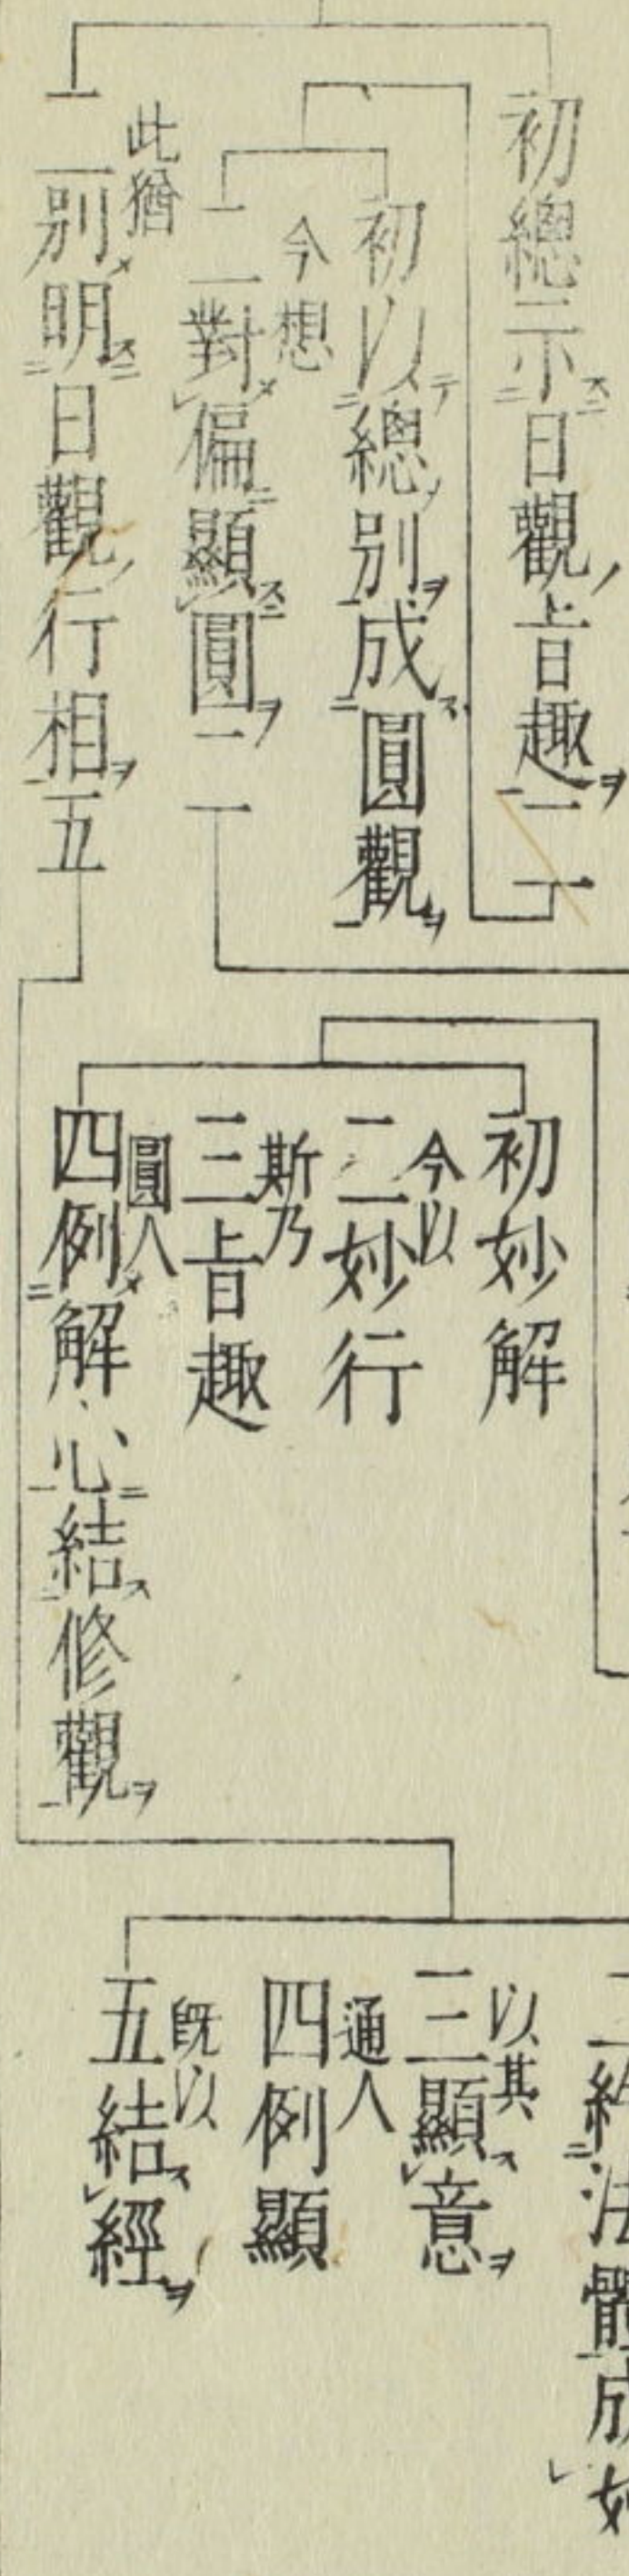 初總示日觀旨趣二
初以總別成圓觀
今想
二對偏顯圓二
此猶
二別明日觀行相五
初妙解
今以
二妙行
斯乃
三旨趣
圓人
四例解心結修觀
法體成
以其
三顯意
通人
四例顯
既以
五結經